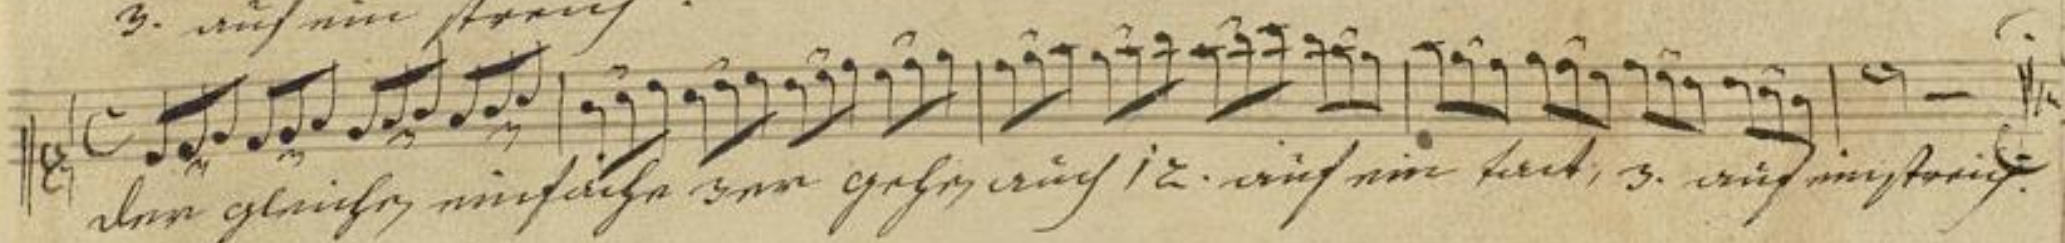 3. auf ein streich.
der gleichen einfache 3er gehen auch 12. auf ein tact, 3. auf ein streich.